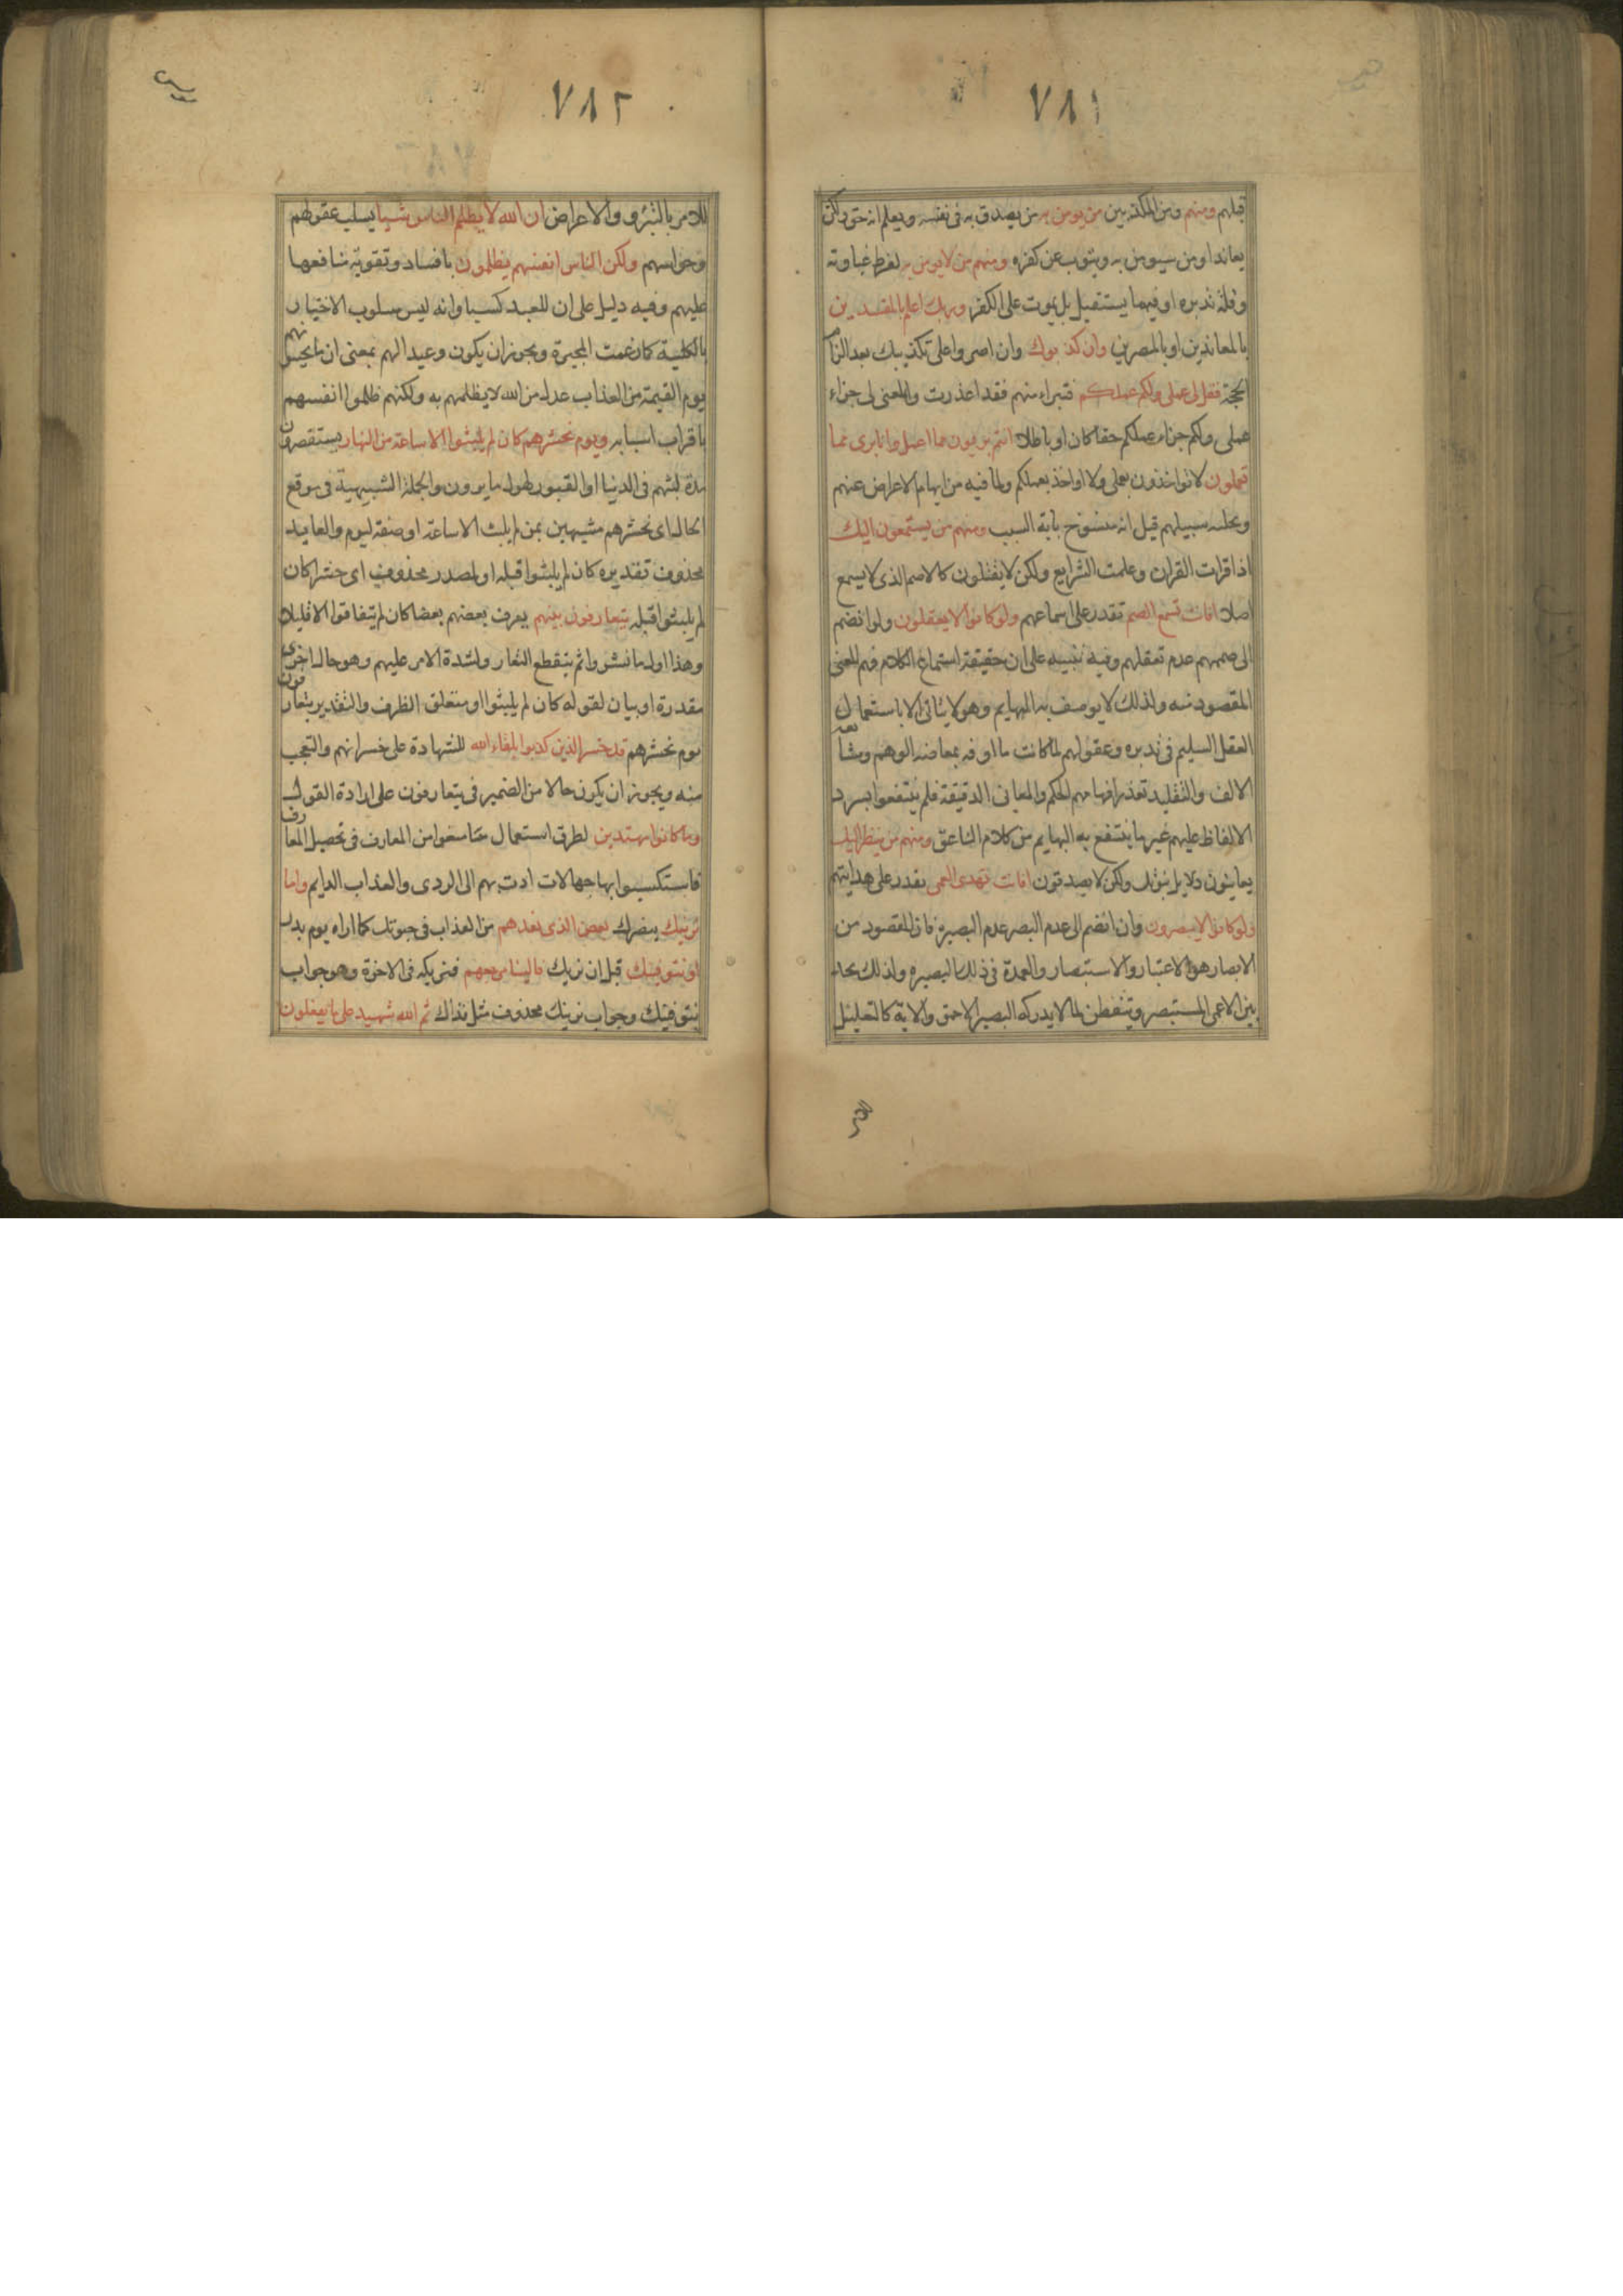 ٧٨١
قبلهم ومنهم ومن المكذبين من يومن به من يصدق به فى نفسه ويعلم انه حق ولكن
يعاند او من سيومن به ويتوب عن كفره ومنهم من لا يومن به لفرط غباوته
وقلة تدبره او فيما يستقبل بل يموت على الكفر وربك اعلم بالمفسدين
بالمعاندين او بالمصرين وان كذبوك وان اصروا على تكذيبك بعد الزام
الحجة فقل لى عملى ولكم عملكم فتبراء منهم فقد اعذرت والمعنى لى جزاء
عملى ولكم جزاء عملكم حقا كان او باطلا انتم بريون مما اعمل وانا برى مما
تعملون لا تواخذون بعملى ولا اواخذ بعملكم ولما فيه من ايهام الاعراض عنهم
وتخلية سبيلهم قيل انه منسوخ باية السيف ومنهم من يستمعون اليك
اذا قرات القران وعلمت الشرايع ولكن لا يقبلون كالاصم الذى لا يسمع
اصلا افانت تسمع الصم تقدر على اسماعهم ولو كانوا لا يعقلون ولو انضم
الى صممهم عدم تعقلهم وفيه تنبيه على ان حقيقة استماع الكلام فهم المعنى
المقصود منه ولذلك لا يوصف به البهايم وهو لا يتاتى الا باستعمال
العقل السليم فى تدبره وعقولهم لما كانت ماوفه بمعارضه الوهم ومشايعه
الالف والتقليد تعذر افهامهم الحكم والمعانى الدقيقة فلم ينتفعوا بسرد
الالفاظ عليهم غير ما ينتفع به البهايم من كلام الناعق ومنهم من ينظر اليك
يعاينون دلايل نبوتك ولكن لا يصدقون افانت تهدى العمى تقدر على هدايتهم
ولو كانوا لا يبصرون وان انضم الى عدم البصر عدم البصيرة فان المقصود من
الابصار هو الاعتبار والاستبصار والعمدة فى ذلك البصيره ولذلك يحدس
الاعمى المستبصر ويتفطن لما لا يدركه البصير الاحمق والاية كالتعليل
للامر
٧٨٢
للامر بالتبرو والاعراض ان الله لا يظلم الناس شيا بسلب عقولهم
وحواسهم ولكن الناس انفسهم يظلمون بافساد وتفويته منافعها
عليهم وفيه دليل على ان للعبد كسبا وانه ليس مسلوب الاختيار
بالكلية كما زعمت المجبرة ويجوز ان يكون وعيدا لهم بمعنى ان ما يحيق بهم
يوم القيمة من العذاب عدل من الله لا يظلمهم به ولكنهم ظلموا انفسهم
باقتراب اسبابه ويوم نحشرهم كان لم يلبثوا الا ساعة من النهار يستقصرون
مدة لبثهم فى الدنيا او القبور لهول ما يرون والجملة التشبيهية فى موقع
الحال اى نحشرهم مشبهين بمن لم يلبث الا ساعة او صفة ليوم والعايد
محذوف تقديره كان لم يلبثوا قبله او لمصدر محذوف اى حشرا كان
لم يلبثوا قبله يتعارفون بينهم يعرف بعضهم بعضا كان لم يتفارقوا الا قليلا
وهذا اول ما نشروا ثم ينقطع التعارف لشدة الامر عليهم وهو حال اخرى
مقدرة او بيان لقوله كان لم يلبثوا او متعلق الظرف والتقدير يتعارفون
يوم نحشرهم قد خسر الذين كذبوا بلقاء الله للشهادة على خسرانهم والتعجب
منه ويجوز ان يكون حالا من الضمير فى يتعارفون على ارادة القول
وما كانوا مهتدين لطرق استعمال ما منحوا من المعاون فى تحصيل المعارف
فاستكسبوا بها جهالات ادت بهم الى الردى والعذاب الدايم واما
نرينك نبصرنك بعض الذى نعدهم من العذاب فى حيوتك كما اراه يوم بدر
او نتوفينك قبل ان نريك فالينا مرجعهم فنريكه فى الاخرة وهو جواب
نتوفينك وجواب نرينك محذوف مثل فذاك ثم الله شهيد على ما يفعلون